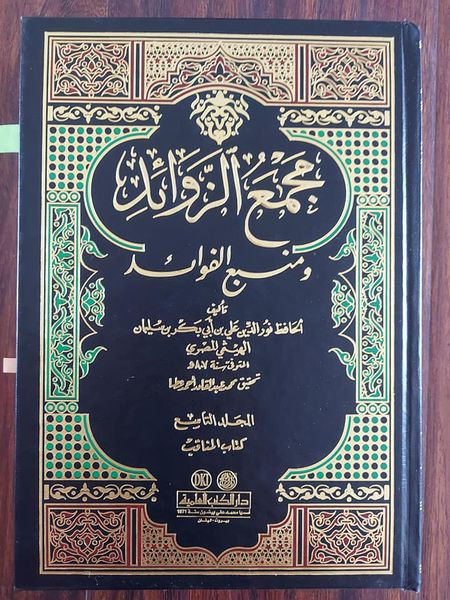 مجمع الزوائد
ومنبع الفوائد
تأليف
الحافظ نور الدين علي بن أبي بكر بن سليمان
الهيثمي المصري
المتوفى سنة ٨٠٧ هـ
تحقيق محمد عبد القادر أحمد عطا
المجلد التاسع
كتاب المناقب
DKi
دار الكتب العلمية
أسسها محمد علي بيضون سنة 1971
بيروت - لبنان